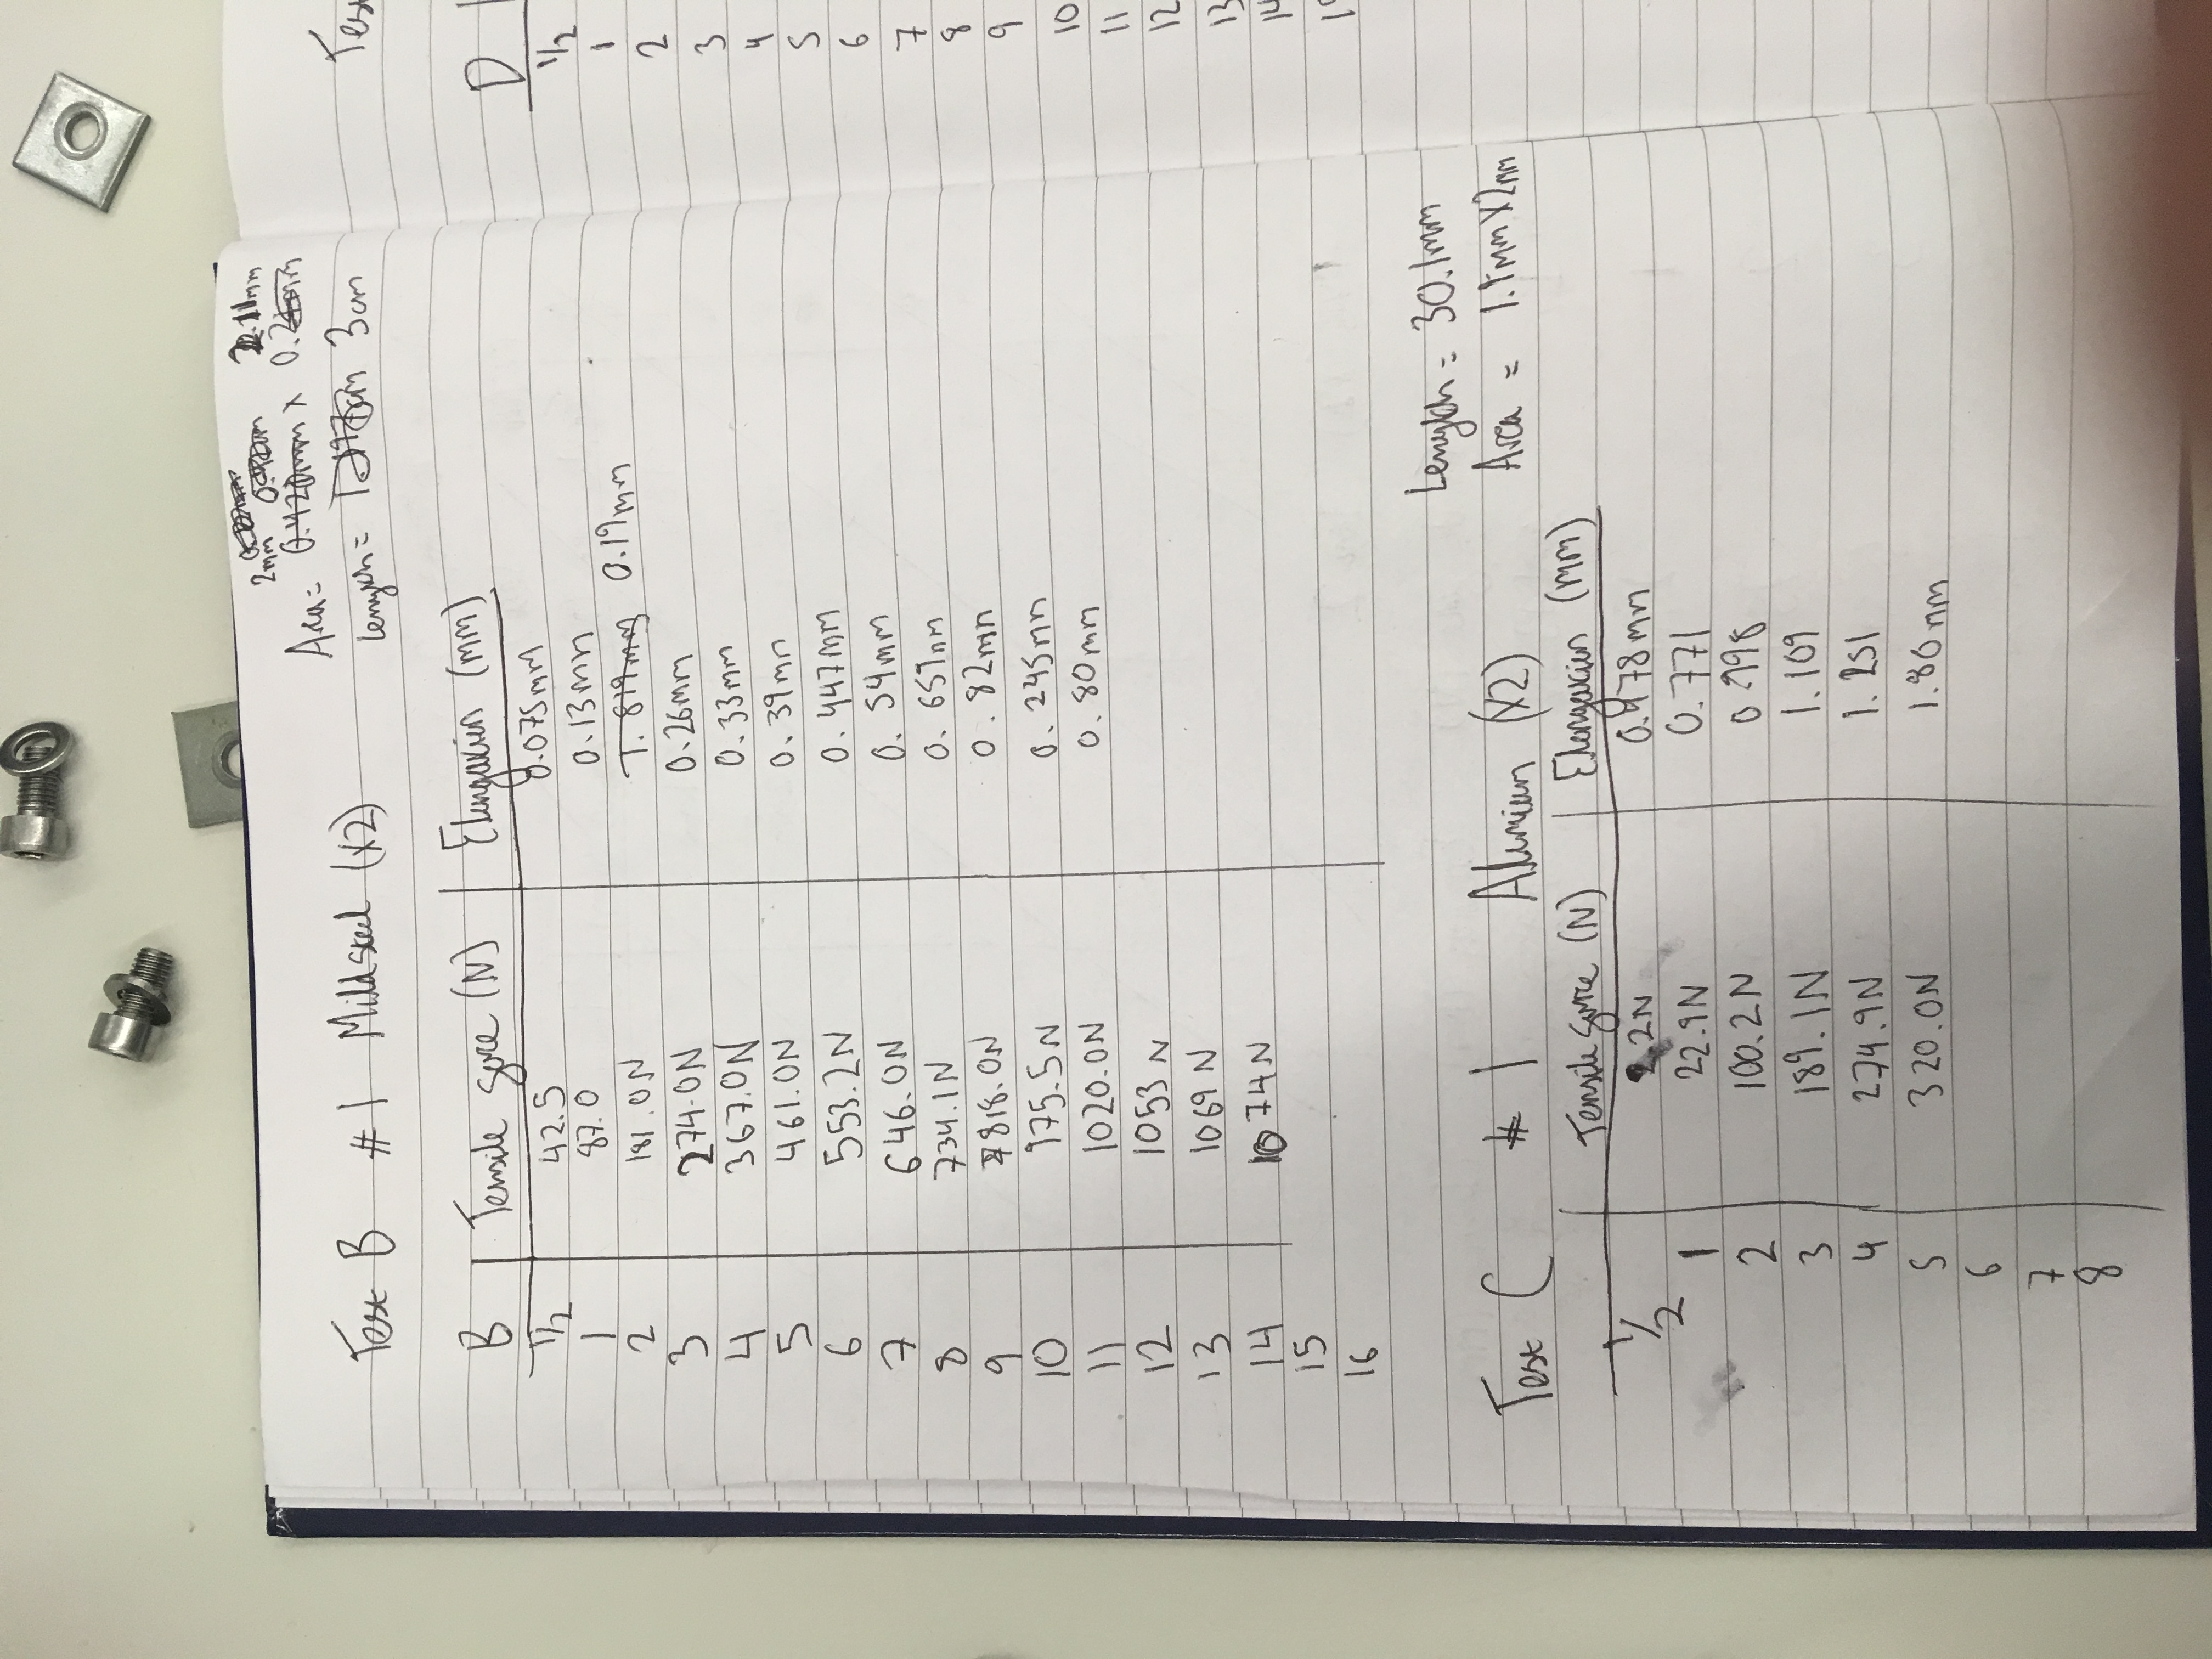 2mm 2.11mm
Area = 0.420mm x 0.21mm
Test B #1 Mild steel (x2)
Length = 3cm
B Tensile force (N) Elongation (mm)
1/2 42.5 0.075mm
1 87.0 0.13mm
2 181.0N 1.819mm 0.19mm
3 274.0N 0.26mm
4 367.0N 0.33mm
5 461.0N 0.39mm
6 553.2N 0.447mm
7 646.0N 0.54mm
8 734.1N 0.659mm
9 818.0N 0.82mm
10 975.5N 0.245mm
11 1020.0N 0.80mm
12 1053N
13 1069N
14 1074N
15
16
Length = 30.1mm
Test C #1 Alumium (x2)
Area = 1.9mm x 2mm
Tensile force (N) Elongation (mm)
1/2 2.2N 0.478mm
1 22.9N 0.771
2 100.2N 0.998
3 189.1N 1.109
4 274.9N 1.251
5 320.0N 1.80mm
6
7
8
Test
D
1/2
1
2
3
4
5
6
7
8
9
10
11
12
13
14